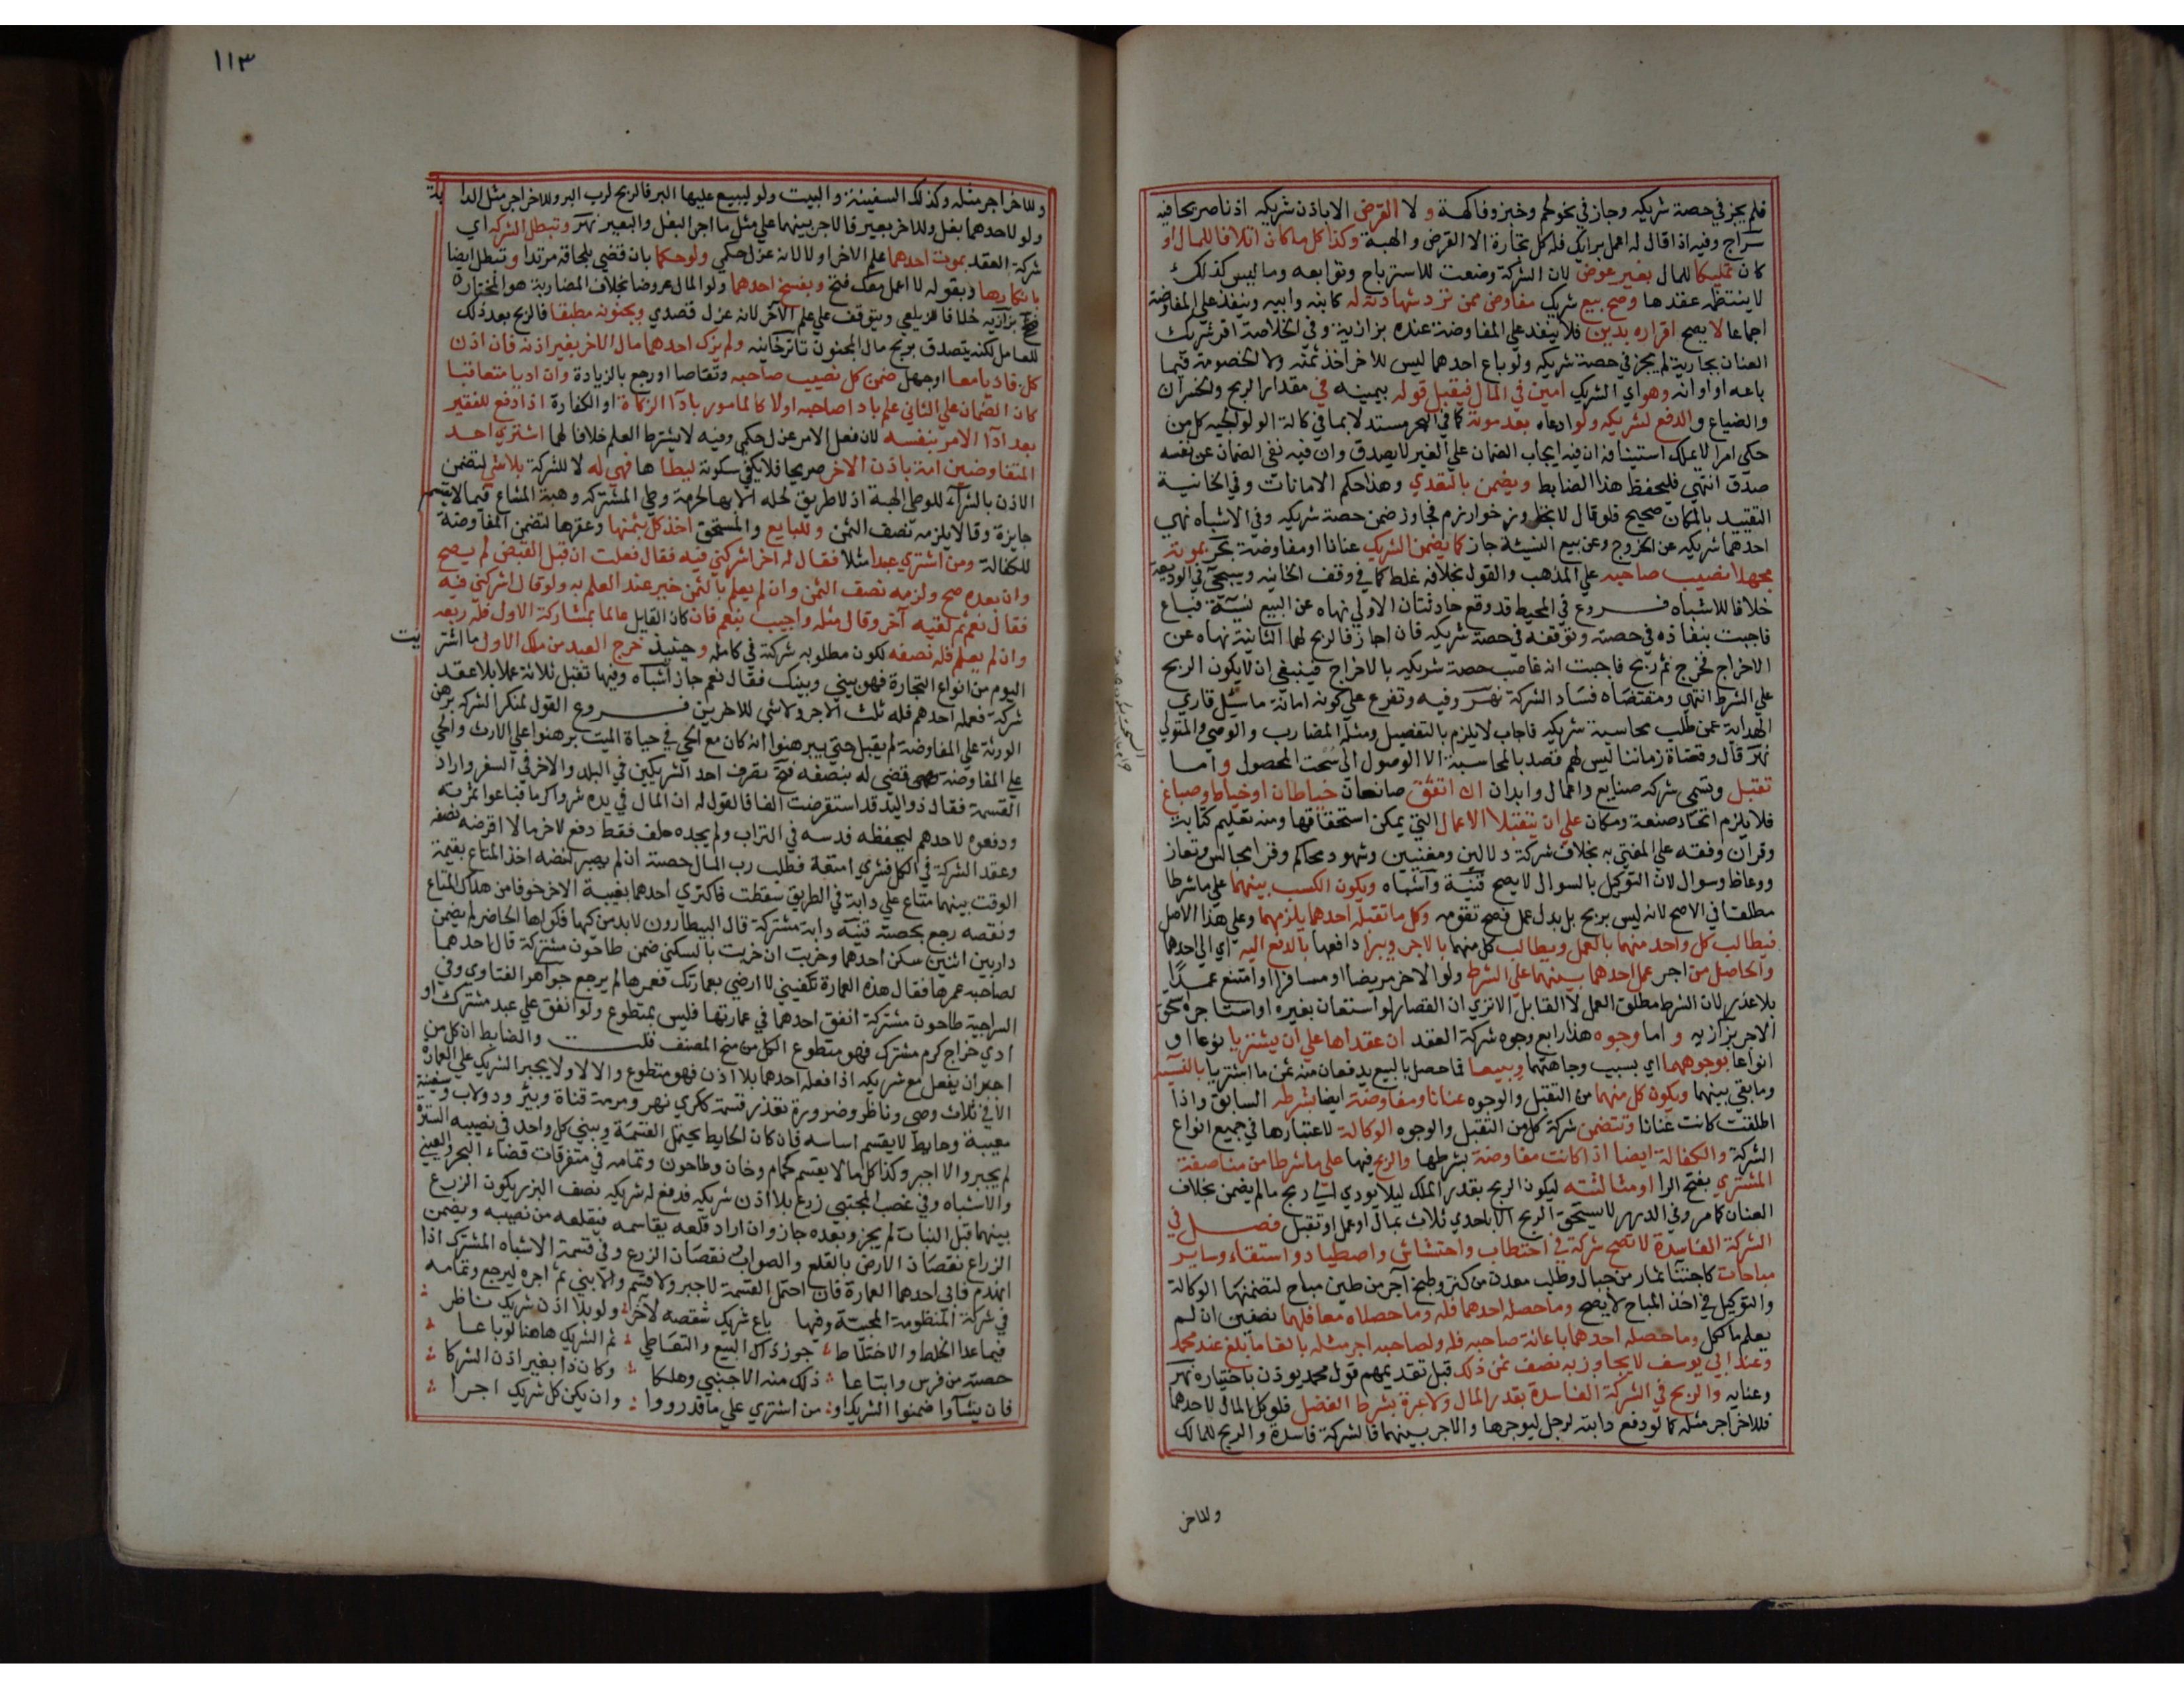 فلم يجز في حصة شريكه وجاز في نحو لحم وخبز وفاكهة ولا القرض الا باذن شريكه اذنا صريحا فيه
سراج وفيه اذا قال له اعمل برايك فله كل تجارة الا القرض والهبة وكذا كل ما كان اتلافا للمال او
كان تمليكا للمال بغير عوض لان الشركة وضعت للاسترباح وتوابعه وما ليس كذلك
لا ينتظمه عقدها وصح بيع شريك مفاوض ممن ترد شهادته له كابنه وابيه وينفذ علي المفاوضة
اجماعا لا يصح اقراره بدين فلا ينفذ علي المفاوضة عنده بزازية وفي الخلاصة اقر شريك
العنان بجارية لم يجز في حصة شريكه ولو باع احدهما ليس للاخر اخذ ثمنه ولا الخصومة فيما
باعه او اوانه وهو اي الشريك امين في المال فيقبل قوله بيمينه في مقدار الربح والخسران
والضياع والدفع لشريكه ولو ادعاه بعد موته كما في البحر مستدلا بما في كالة الولوالجيه كل من
حكى امرا لا يملك استينافه ان فيه ايجاب الضمان علي الغير لا يصدق وان فيه نفي الضمان عن نفسه
صدق انتهي فليحفظ هذا الضابط ويضمن بالتعدي وهذا حكم الامانات وفي الخانية
التقييد بالمكان صحيح فلو قال لا تجاوز خوارزم فجاوز ضمن حصة شريكه وفي الاشباه نهي
احدهما شريكه عن الخروج وعن بيع النسيئة جاز كما يضمن الشريك عنانا او مفاوضة بحر بموته
مجهلا نصيب صاحبه علي المذهب والقول بخلافه غلط كما في وقف الخانيه وسيجئ في الوديعة
خلافا للاشباه فروع في المحيط قد وقع حادثتان الاولي نهاه عن البيع نسيئة فباع
فاجبت بنفاذه في حصته وتوقفه في حصة شريكه فان اجاز فالربح لهما الثانية نهاه عن
الاخراج فخرج ثم ربح فاجبت انه غاصب حصة شريكه بالاخراج فينبغي ان لا يكون الربح
علي الشرط انتهي ومقتضاه فساد الشركة نهر وفيه وتفرع علي كونه امانة ما سئل قاري
الهداية عمن طلب محاسبة شريكه فاجاب لا يلزم بالتفصيل ومثله المضارب والوصي والمتولي
نهر قال وقضاة زماننا ليس لهم قصد بالمحاسبة الا الوصول الى سحت المحصول واما
تقبل وتسمى شركة صنايع واعمال وابدان ان اتفق صانعان خياطان او خياط وصباغ
فلا يلزم اتحاد صنعة ومكان علي ان يتقبلا الاعمال التي يمكن استحقاقها ومنه تعليم كتابة
وقران وفقه علي المفتي به بخلاف شركة دلالين ومغنيين وشهود محاكم وقرا مجالس وتعاز
ووعاظ وسوال لان التوكيل بالسوال لا يصح قنية واشباه ويكون الكسب بينهما علي ما شرطا
مطلقا في الاصح لانه ليس بربح بل بدل عمل فصح تقومه وكل ما تقبله احدهما يلزمهما وعلي هذا الاصل
فيطالب كل واحد منهما بالعمل ويطالب كل منهما بالاجر ويبرا دافعها بالدفع اليه اي الي احدهما
والحاصل من اجر عمل احدهما بينهما علي الشرط ولو الاخر مريضا او مسافرا او امتنع عمدا
بلا عذر لان الشرط مطلق العمل لا القابل الا تري ان القصار لو استعان بغيره او استاجره استحق
الاجر بزازيه واما وجوه هذا رابع وجوه شركة العقد ان عقداها علي ان يشتريا نوعا او
انواعا بوجوههما اي بسبب وجاهتهما ويبيعا فما حصل بالبيع يدفعان منه ثمن ما اشتريا بالنسيئة
وما بقي بينهما ويكون كل منهما من التقبل والوجوه عنانا ومفاوضة ايضا بشرطه السابق واذا
اطلقت كانت عنانا وتتضمن شركة كل من التقبل والوجوه الوكالة لاعتبارها في جميع انواع
الشركة والكفالة ايضا اذا كانت مفاوضة بشرطها والربح فيها على ما شرطا من مناصفة
المشتري بفتح الرا او مثالثته ليكون الربح بقدر الملك ليلا يودي الي ربح ما لم يضمن بخلاف
العنان كما مر وفي الدرر لا يستحق الربح الا باحدي ثلاث بمال او عمل او تقبل فصل في
الشركة الفاسدة لا تصح شركة في احتطاب واحتشاش واصطياد واستقاء وساير
مباحات كاجتناء ثمار من جبال وطلب معدن من كنز وطبخ آجر من طين مباح لتضمنها الوكالة
والتوكيل في اخذ المباح لا يصح وما حصل احدهما فله وما حصلاه معا فلهما نصفين ان لم
يعلم ما لكل وما حصله احدهما باعانة صاحبه فله ولصاحبه اجر مثله بالغا ما بلغ عند محمد
وعند ابي يوسف لا يجاوز به نصف ثمن ذلك قبل تقديمهم قول محمد يوذن باختياره نهر
وعنايه والربح في الشركة الفاسدة بقدر المال ولا عبرة بشرط الفضل فلو كل المال لاحدهما
فللاخر اجر مثله كما لو دفع دابته لرجل ليوجرها والاجر بينهما فالشركة فاسدة والربح للمالك
وللاخر
١١٣
وللاخر اجر مثله وكذلك السفينة والبيت ولو ليبيع عليها البر فالربح لرب البر وللاخر اجر مثل الدابة
ولو لاحدهما بغل وللاخر بعير فالاجر بينهما علي مثل ما اجر البغل والبعير نهر وتبطل الشركه اي
شركة العقد بموت احدهما علم الاخر او لا لانه عزل حكمي ولو حكما بان قضي بلحاقه مرتدا وتبطل ايضا
بانكارها وبقوله لا اعمل معك فتح وبفسخ احدهما ولو المال عروضا بخلاف المضاربة هو المختار
بزازيه خلافا للزيلعي ويتوقف علي علم الآخر لانه عزل قصدي وبجنونه مطبقا فالربح بعد ذلك
للعامل لكنه يتصدق بربح مال المجنون تاترخانيه ولم يزك احدهما مال الاخر بغير اذنه فان اذن
كل فاديا معا او جهل ضمن كل نصيب صاحبه وتقاصا او رجع بالزيادة وان اديا متعاقبا
كان الضمان علي الثاني علم باداء صاحبه اولا كالمامور باداء الزكاة او الكفارة اذا دفع للفقير
بعد اداء الامر بنفسه لان فعل الامر عزل حكمي وفيه لا يشترط العلم خلافا لهما اشتري احد
المتفاوضين امة باذن الاخر صريحا فلا يكفي سكوته ليطاها فهي له لا للشركة بلا شي لتضمن
الاذن بالشراء للوطي الهبة اذ لا طريق لحله الا بها لحرمة وطي المشتركه وهبة المشاع فيما لا يقسم
جايزة وقالا يلزمه نصف الثمن وللبايع والمستحق اخذ كل بثمنها وعقرها لتضمن المفاوضة
للكفالة ومن اشتري عبدا مثلا فقال له اخر اشركني فيه فقال فعلت ان قبل القبض لم يصح
وان بعده صح ولزمه نصف الثمن وان لم يعلم بالثمن خير عند العلم به ولو قال اشركني فيه
فقال نعم ثم لقيه آخر وقال مثله واجيب بنعم فان كان القايل عالما بمشاركة الاول فله ربعه
وان لم يعلم فله نصفه لكون مطلوبه شركته في كامله وحينيذ خرج العبد من ملك الاول ما اشتريت
اليوم من انواع التجارة فهو بيني وبينك فقال نعم جاز اشباه وفيها تقبل ثلاثة عملا بلا عقد
شركة فعمله احدهم فله ثلث الاجر ولا شي للاخرين فروع القول لمنكر الشركه برهن
الورثة علي المفاوضة لم يقبل حتي يبرهنوا انه كان مع الحي في حياة الميت برهنوا علي الارث والحي
علي المفاوضة قضي له بنصفه فتح تصرف احد الشريكين في البلد والاخر في السفر واراد
القسمة فقال ذو اليد قد استقرضت الفا فالقول له ان المال في يده شروا كرما فباعوا ثمرته
ودفعوه لاحدهم ليحفظه فدسه في التراب ولم يجده حلف فقط دفع لاخر مالا اقرضه نصفه
وعقد الشركة في الكل فشري امتعة فطلب رب المال حصته ان لم يصبر لنضه اخذ المتاع بقيمة
الوقت بينهما متاع علي دابة في الطريق سقطت فاكتري احدهما بغيبة الاخر خوفا من هلاك المتاع
ونقصه رجع بحصته قنيه دابة مشتركة قال البيطارون لا بد من كيها فكواها الحاضر لم يضمن
دار بين اثنين سكن احدهما وخربت ان خربت بالسكني ضمن طاحون مشتركة قال احدهما
لصاحبه عمرها فقال هذه العمارة تكفيني لا ارضي بعمارتك فعمرها لم يرجع جواهر الفتاوي وفي
السراجية طاحون مشتركة انفق احدهما في عمارتها فليس بمتطوع ولو انفق علي عبد مشترك او
ادي خراج كرم مشترك فهو متطوع الكل من منح المصنف قلت والضابط ان كل من
اجبر ان يفعل مع شريكه اذا فعله احدهما بلا اذن فهو متطوع والا لا ولا يجبر الشريك علي العمارة
الا في ثلاث وصي وناظر وضرورة تعذر قسمة ككري نهر ومرمة قناة وبئر ودولاب وسفينة
معيبة وحايط لا يقسم اساسه فان كان الحايط يحتمل القسمة ويبني كل واحد في نصيبه السترة
لم يجبر والا اجبر وكذا كل ما لا يقسم كحمام وخان وطاحون وتمامه في متفرقات قضاء البحر والعيني
والاشباه وفي غصب المجتبي زرع بلا اذن شريكه فدفع له شريكه نصف البزر ليكون الزرع
بينهما قبل النبات لم يجز وبعده جاز وان اراد قلعه يقاسمه فيقلعه من نصيبه ويضمن
الزراع نقصان الارض بالقلع والصواب نقصان الزرع وفي قسمة الاشباه المشترك اذا
انهدم فابي احدهما العمارة فان احتمل القسمة لا جبر ولا قسم والا بني ثم اجره ليرجع وتمامه
في شركة المنظومة المحبية وفيها باع شريك شقصه لآخر ولو بلا اذن شريك ناظر
فيما عدا الخلط والاختلاط جوز ذاك البيع والتعاطي ثم الشريك هاهنا لو باعا
حصته من فرس وابتاعا ذلك منه الاجنبي وهلكا وكان ذا بغير اذن الشركا
فان يشاوا ضمنوا الشريك او من اشتري علي ما قد رووا وان يكن كل شريك اجرا